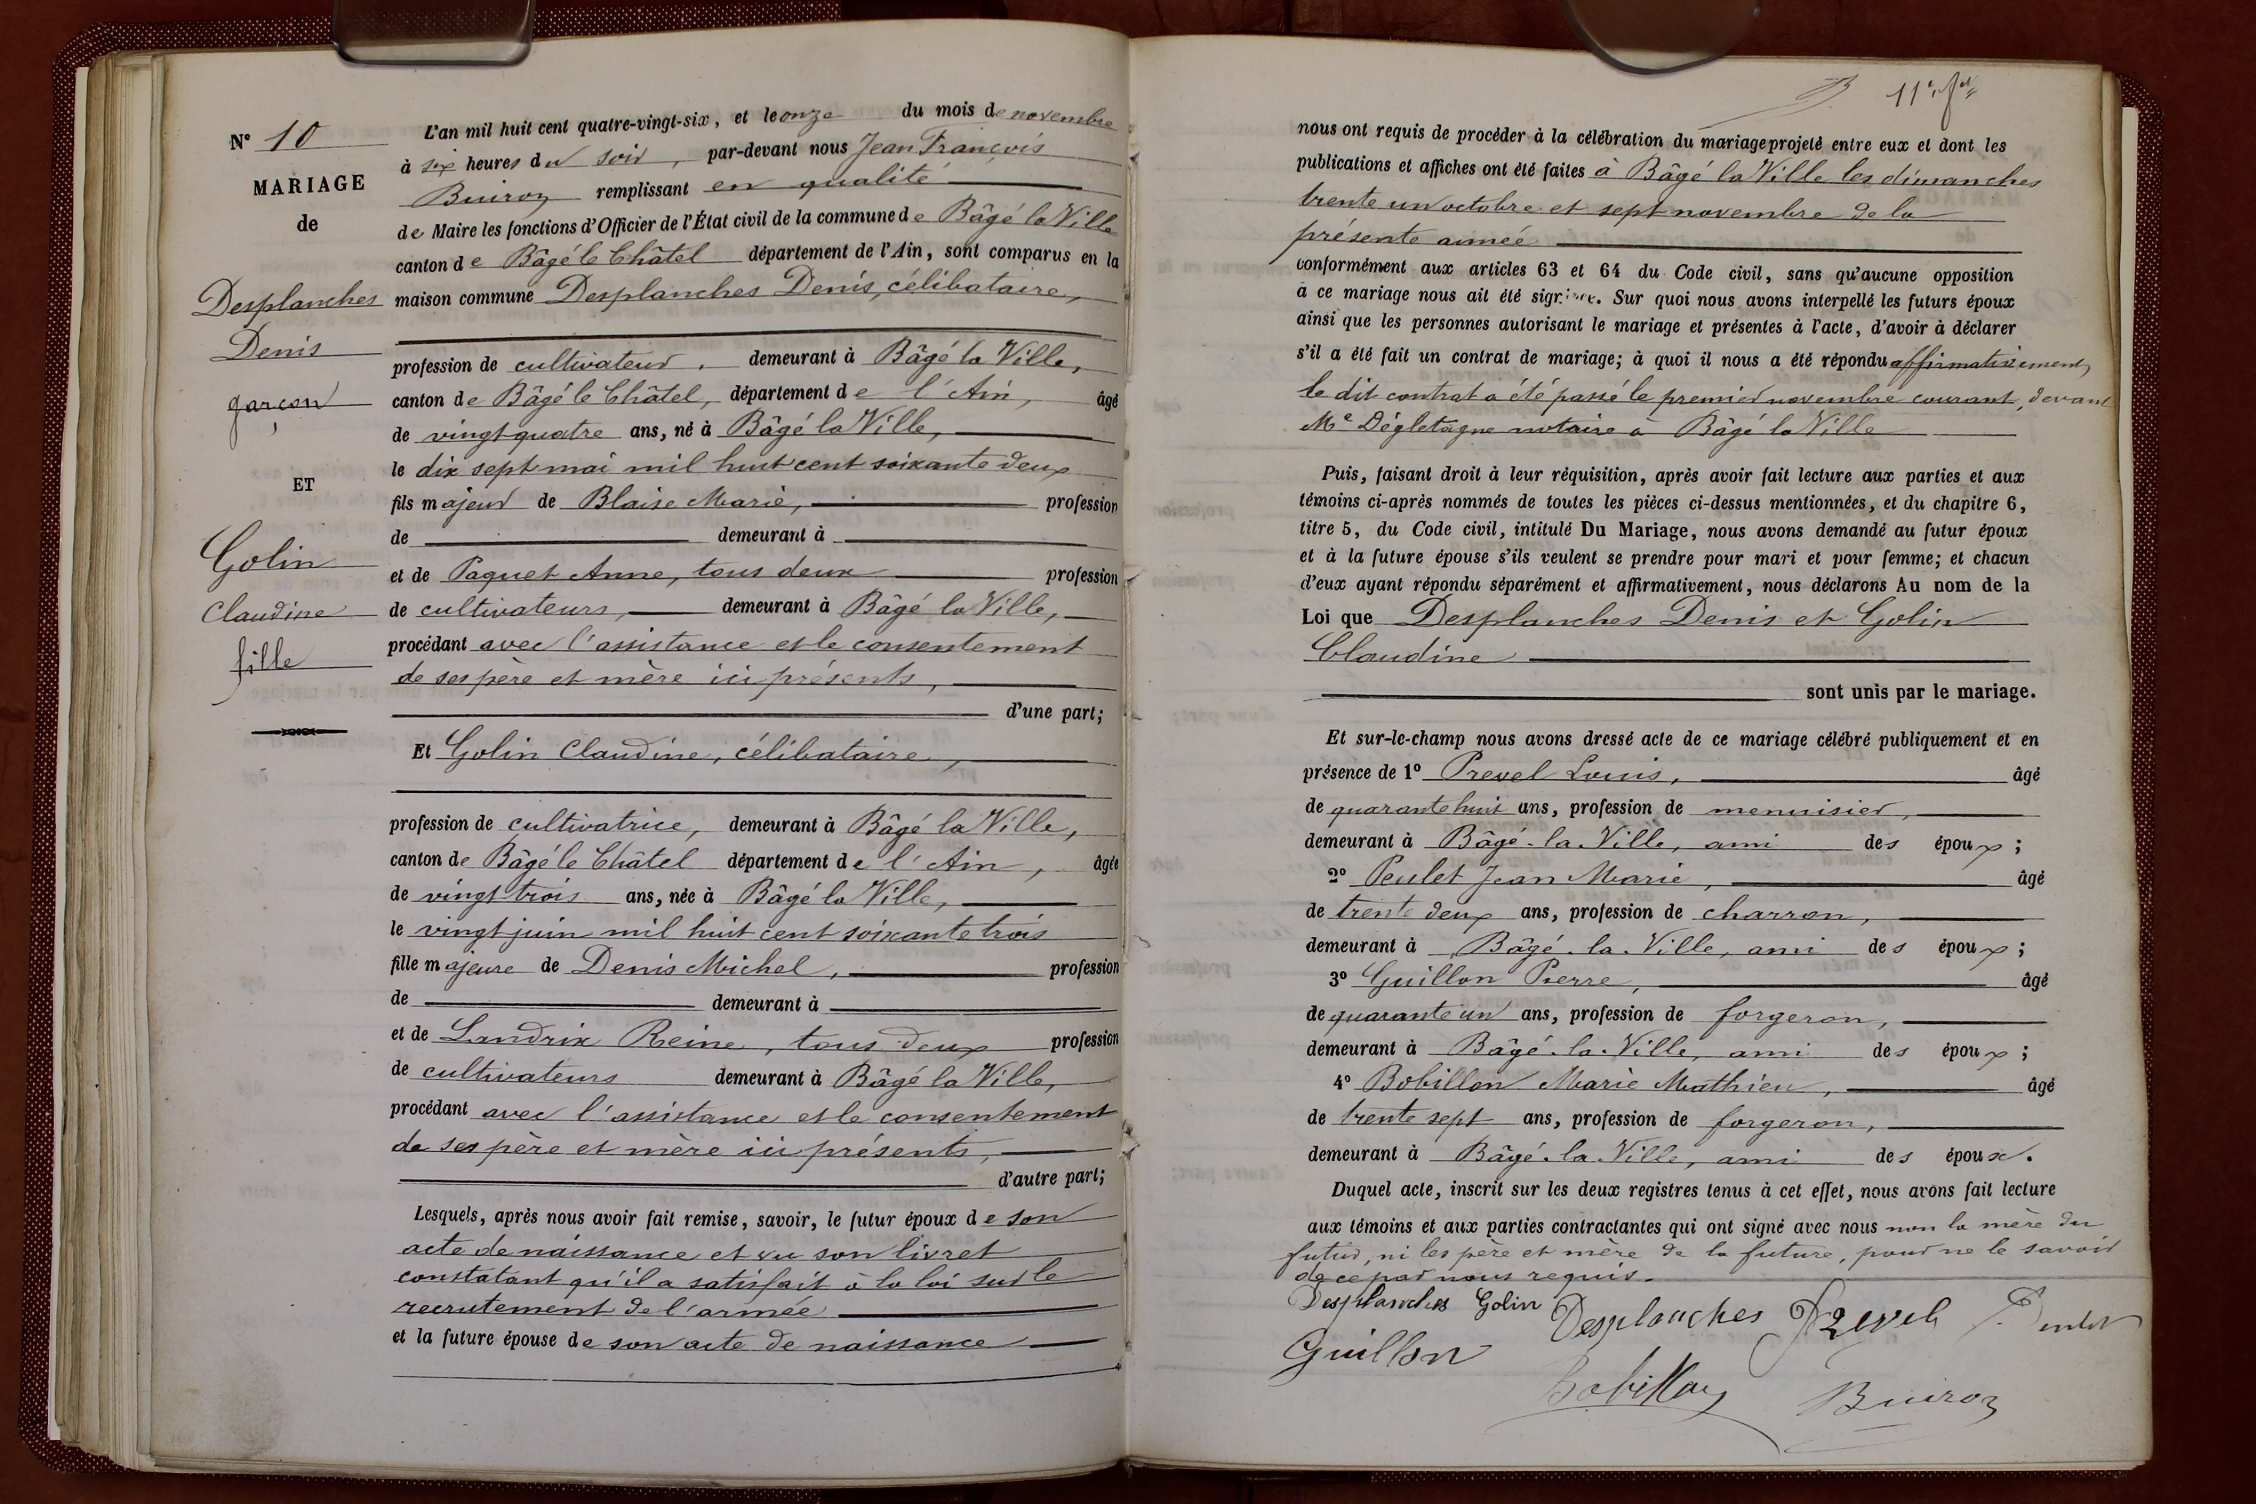 N° 10
MARIAGE
de
Desplanches
Denis
garçon
ET
Golin
Claudine
fille
L'an mil huit cent quatre-vingt-six, et le onze du mois de novembre
à six heures du soir, par-devant nous Jean François
Buiron remplissant en qualité
de Maire les fonctions d'Officier de l'État civil de la commune de Bâgé la Ville
canton de Bâgé le Châtel département de l'Ain, sont comparus en la
maison commune Desplanches Denis, célibataire,
profession de cultivateur, demeurant à Bâgé la Ville,
canton de Bâgé le Châtel, département de l'Ain, âgé
de vingt quatre ans, né à Bâgé la Ville,
le dix sept mai mil huit cent soixante deux
fils majeur de Blaise Marie, profession
de demeurant à
et de Paquet Anne, tous deux profession
de cultivateurs, demeurant à Bâgé la Ville,
procédant avec l'assistance et le consentement
de ses père et mère ici présents,
d'une part;
Et Golin Claudine, célibataire,
profession de cultivatrice, demeurant à Bâgé la Ville,
canton de Bâgé le Châtel département de l'Ain, âgée
de vingt trois ans, née à Bâgé la Ville,
le vingt juin mil huit cent soixante trois
fille majeure de Denis Michel, profession
de demeurant à
et de Landrix Reine, tous deux profession
de cultivateurs demeurant à Bâgé la Ville,
procédant avec l'assistance et le consentement
de ses père et mère ici présents,
d'autre part;
Lesquels, après nous avoir fait remise, savoir, le futur époux de son
acte de naissance et vu son livret
constatant qu'il a satisfait à la loi sur le
recrutement de l'armée
et la future épouse de son acte de naissance
11e
nous ont requis de procéder à la célébration du mariage projeté entre eux et dont les
publications et affiches ont été faites à Bâgé la Ville les dimanches
trente un octobre et sept novembre de la
présente année
conformément aux articles 63 et 64 du Code civil, sans qu'aucune opposition
à ce mariage nous ait été signifiée. Sur quoi nous avons interpellé les futurs époux
ainsi que les personnes autorisant le mariage et présentes à l'acte, d'avoir à déclarer
s'il a été fait un contrat de mariage; à quoi il nous a été répondu affirmativement,
le dit contrat a été passé le premier novembre courant, devant
Me Dégletagne notaire à Bâgé la Ville
Puis, faisant droit à leur réquisition, après avoir fait lecture aux parties et aux
témoins ci-après nommés de toutes les pièces ci-dessus mentionnées, et du chapitre 6,
titre 5, du Code civil, intitulé Du Mariage, nous avons demandé au futur époux
et à la future épouse s'ils veulent se prendre pour mari et pour femme; et chacun
d'eux ayant répondu séparément et affirmativement, nous déclarons Au nom de la
Loi que Desplanches Denis et Golin
Claudine
sont unis par le mariage.
Et sur-le-champ nous avons dressé acte de ce mariage célébré publiquement et en
présence de 1° Prevel Louis, âgé
de quarante huit ans, profession de menuisier,
demeurant à Bâgé-la-Ville, ami des époux;
2° Peulet Jean Marie, âgé
de trente deux ans, profession de charron,
demeurant à Bâgé-la-Ville, ami des époux;
3° Guillon Pierre, âgé
de quarante un ans, profession de forgeron,
demeurant à Bâgé-la-Ville, ami des époux;
4° Bobillon Marie Mathieu, âgé
de trente sept ans, profession de forgeron,
demeurant à Bâgé-la-Ville, ami des époux.
Duquel acte, inscrit sur les deux registres tenus à cet effet, nous avons fait lecture
aux témoins et aux parties contractantes qui ont signé avec nous non la mère du
futur, ni les père et mère de la future, pour ne le savoir
de ce par nous requis.
Desplanches Golin Desplanches Prevel Peulet
Guillon
Bobillon Buiron